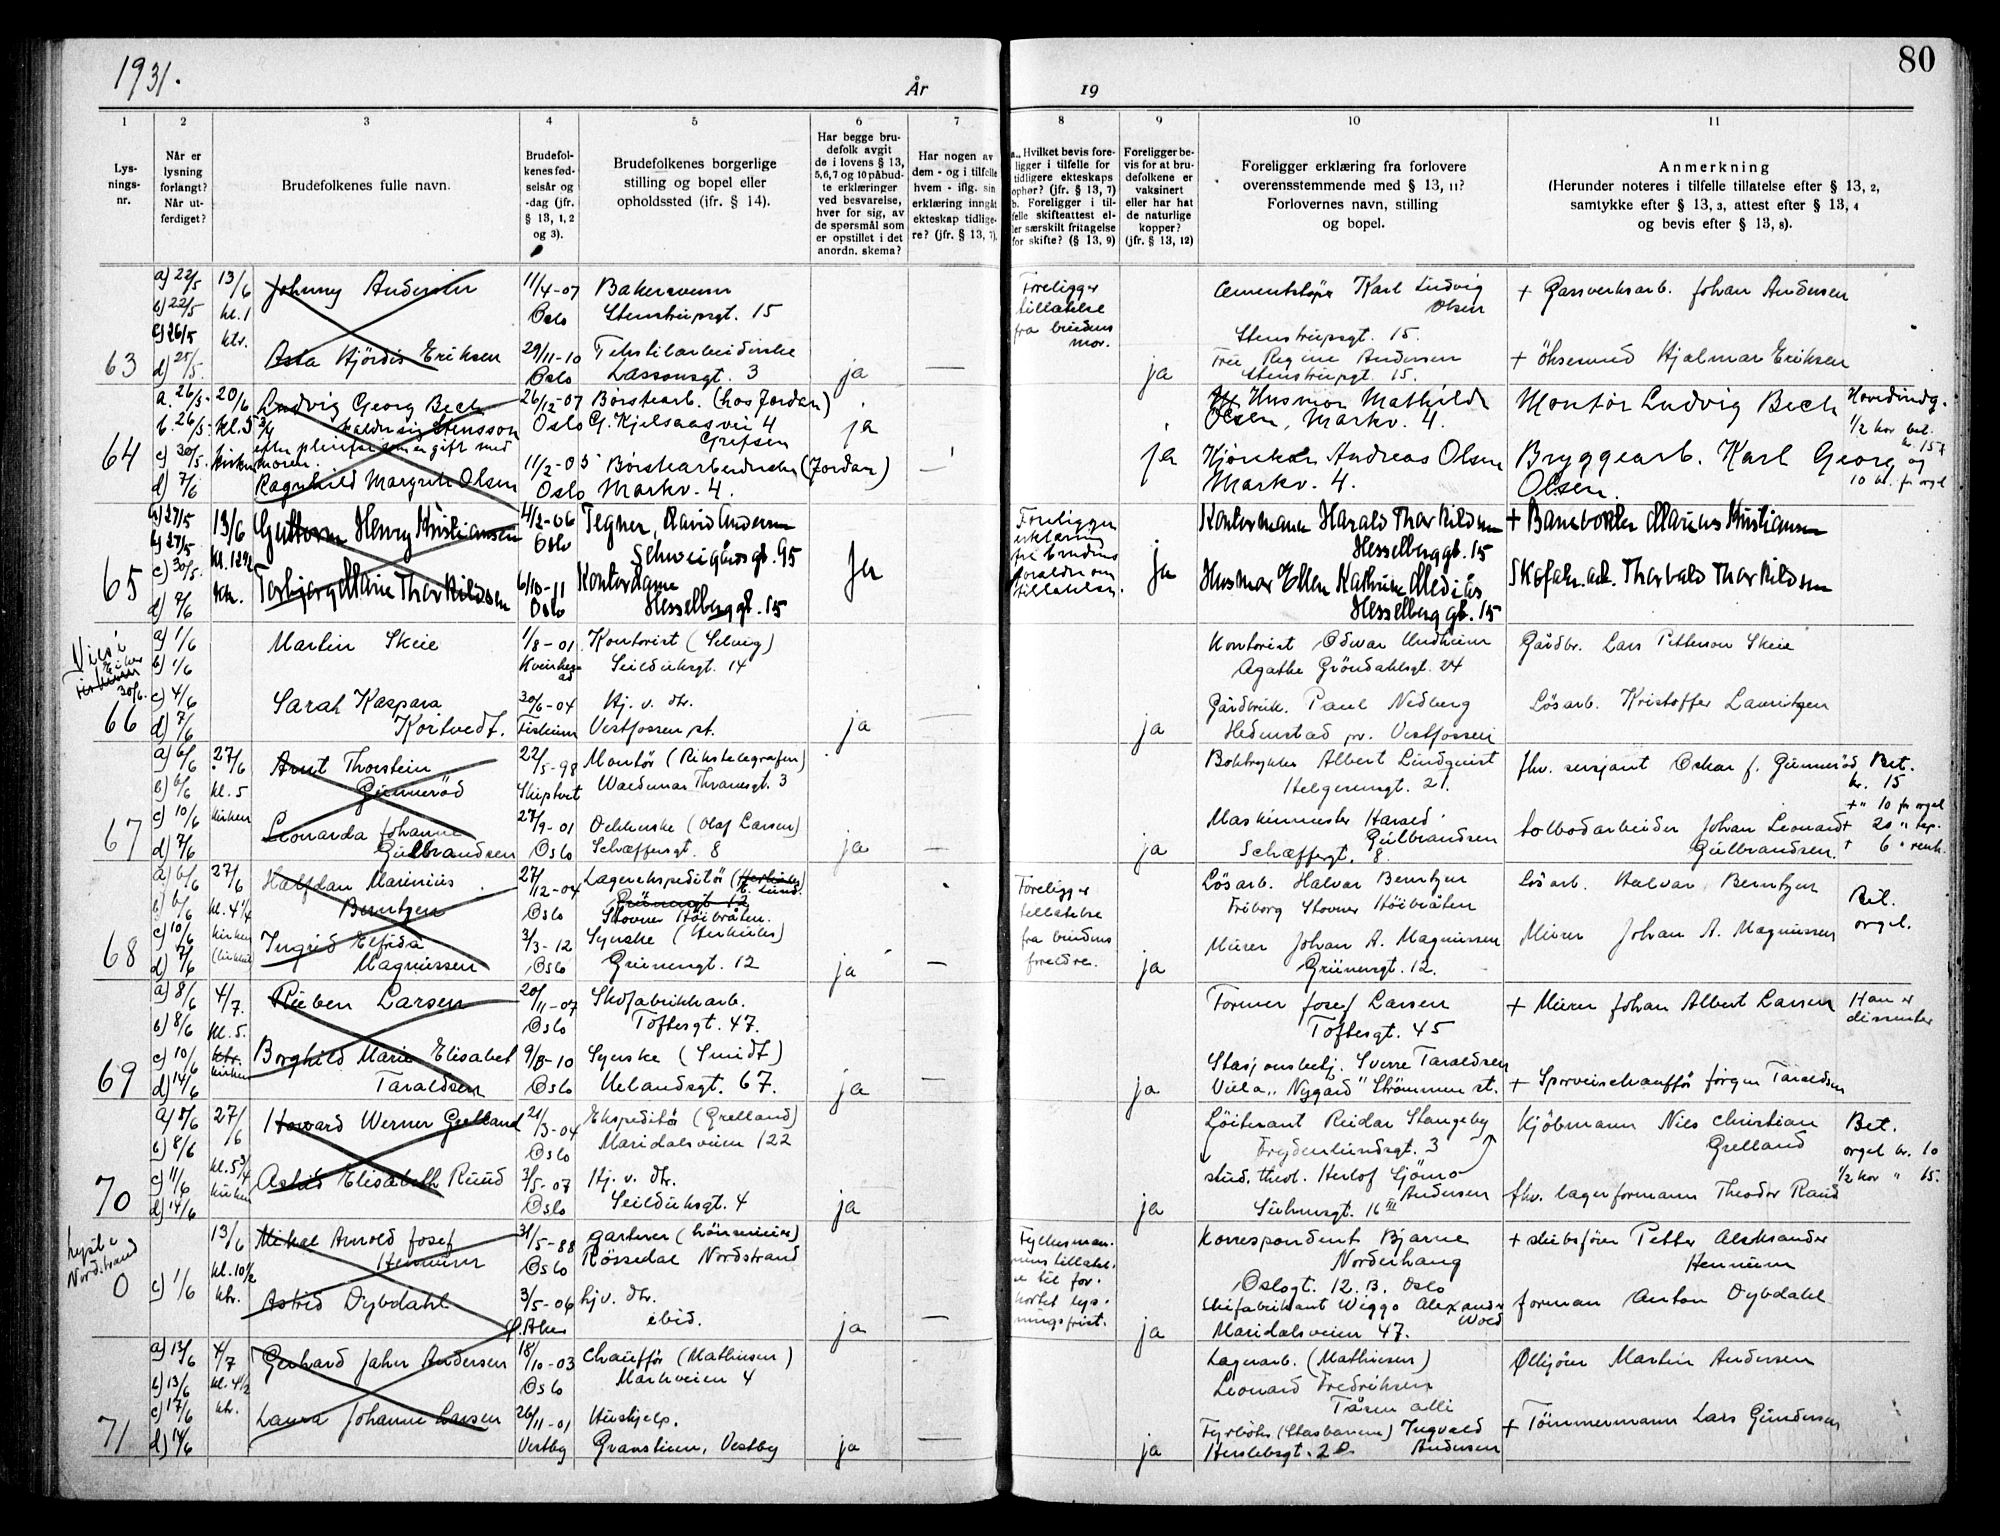 1931.
År
19
80
1
2
3
4
5
6
7
8
9
10
11
Lys-
nings-
nr.
Når er
lysning
forlangt?
Når ut-
ferdiget?
Brudefolkenes fulle navn.
Brudefol-
kenes fød-
selsår og
-dag (jfr.
§ 13, 1, 2
og 3).
Brudefolkenes borgerlige
stilling og bopel eller
opholdssted (ifr. § 14).
Har begge bru-
defolk avgit
de i lovens § 13,
5,6,7 og 10 påbud-
te erklæringer
ved besvarelse,
hver for sig, av
de spørsmål som
er opstillet i det
anordn. skema?
Har nogen av
dem - og i tilfelle
hvem - iflg. sin
erklæring inngåt
ekteskap tidlige-
re? (jfr. § 13, 7).
a. Hvilket bevis fore-
ligger i tilfelle for
tidligere ekteskaps
ophør? (jfr. § 13, 7)
b. Foreligger i til-
felle skifteattest el-
ler særskilt fritagelse
for skifte? (§ 13, 9)
Foreligger be-
vis for at bru-
defolkene er
vaksinert
eller har hat
de naturlige
kopper?
(jfr. § 13, 12)
Foreligger erklæring fra forlovere
overensstemmende med § 13, 11?
Forlovernes navn, stilling
og bopel.
Anmerkning
(Herunder noteres i tilfelle tillatelse efter § 13, 2,
samtykke efter § 13, 3, attest efter § 13, 4
og bevis efter § 13, 8).
63
a) 22/5
b) 22/5
c) 26/5
d) 25/5
13/6
kl. 1
ktr.
Johnny Andersen
Asta Hjördis Eriksen
11/4-07
Oslo
29/11-10
Oslo
Bakersvenn
Stenstrupsgt. 15
Tekstilarbeiderske
Lassonsgt. 3
ja
—
Foreligger
tillatelse
fra brudens
mor.
ja
Cementstöper Karl Ludvig
Olsen
Stenstrupsgt. 15.
Fru Regine Andersen
Stenstrupsgt. 15.
+ Gassverksarb. Johan Andersen
+ Öksesmed Hjalmar Eriksen
64
a. 26/5
b. 26/5
c) 30/5
d) 7/6
20/6
kl. 5 3/4
kirken
Ludvig Georg Bech
kalder sig Stensson
efter pleiefar som er gift med
moren.
Ragnhild Margrete Olsen
26/12-07
Oslo
11/2-05
Oslo
Börstearb. (hos Jordan)
G. Kjelsaasvei 4
Grefsen
Börstearbeiderske (Jordan)
Markv. 4.
ja
ja
Husmor Mathilde
Olsen, Markv. 4.
Kjörekar Andreas Olsen
Markv. 4.
Montör Ludvig Bech
Bryggearb. Karl Georg
Olsen.
Hovedindg.
1/2 kor bel.
kr. 15
og
10 kr. for orgel
65
a) 27/5
b) 27/5
c) 30/5.
d) 7/6
13/6
kl. 12 1/2
ktr.
Guttorm Henry Kristiansen
Torbjørg Marie Thorkildsen
4/2-06
Oslo
6/10-11
Oslo
Tegner, David Andersen
Schweigårdsgt. 95
Kontordame
Hesselberggt. 15
Ja
Foreligger
erklæring
fra brudens
foreldre om
tillatelse.
ja
Kontormann Harald Thorkildsen
Hesselberggt. 15
Husmor Ellen Kathrine Mediås
Hesselberggt. 15
+ Banevokter Marius Kristiansen
Skofabr. arb. Thorvald Thorkildsen
Vies i
Eiker
Fiskum
30/6.
66
a) 1/6
b) 1/6
c) 4/6
d) 7/6
Martin Skeie
Sarah Kaspara
Kortvedt.
1/8-01
30/6-04
Fiskum
Kontorist (Selvig)
Seilduksgt. 14
Hj. v. dr.
Vestfossen st.
ja
—
ja
Kontorist Odvar Undheim
Agathe Gröndahlsgt. 24
Gårdbruk. Paul Nedberg
Hedenstad pr. Vestfossen
Gårdbr. Lars Petterson Skeie
Lösarb. Kristoffer Lauritzen
67
a) 6/6
b) 6/6
c) 10/6
d) 7/6
27/6
kl. 5
kirken
Arnt Thorstein
Gunneröd
Leonarda Johanne
Gulbrandsen
22/5-98
Skiptvet
27/9-01
Oslo
Montör (Rikstelegrafen)
Waldemar Thranesgt. 3
Dekkerske (Olaf Larsen)
Schæffersgt. 8
ja
—
ja
Boktrykker Albert Lundqvist
Helgesensgt. 21.
Maskinmester Harald
Gulbrandsen
Schæffergt. 8
fhv. sersjant Oskar J. Gunneröd
tolbodarbeider Johan Leonard
Gulbrandsen.
Bet.
kr. 15
+ " 10 for orgel
+ 20 " tep.
+ 6 " renh.
68
a) 6/6
b) 6/6
c) 10/6
d) 7/6
27/6
kl. 4 1/4
kirken
Halfdan Marinius
Berntzen
Ingrid Elfrida
Magnussen
27/12-04
Oslo
3/3-12
Oslo
Lagerekspeditör
Grünersgt. 12
Stovner Höibråten.
Syerske (Herkules)
Grünersgt. 12
ja
—
Foreligger
tillatelse
fra brudens
foreldre.
ja
Lösarb. Halvar Berntzen
Friborg Stovner Höibråten
Murer Johan A. Magnussen
Grünersgt. 12.
Lösarb. Halvar Berntzen
Murer Johan A. Magnussen
Bet.
orgel.
69
a) 8/6
b) 8/6
c) 10/6
d) 14/6
4/7.
kl. 5.
ktr.
kirken
Ruben Larsen
Borghild Marie Elisabet
Taraldsen
20/11-07
Oslo
9/8-10
Oslo
Skofabrikkarb.
Toftesgt. 47.
Syerske (Smidt)
Uelandsgt. 67.
ja
—
ja
Former Josef Larsen
Toftesgt. 45
Stasjonsbetj. Sverre Taraldsen
Villa „Nygård" Strömmen st.
+ Murer Johan Albert Larsen
+ Sporveischaufför Jörgen Taraldsen
Han er
dissenter
70
a) 8/6
b) 8/6
c) 11/6
d) 14/6
27/6
kl. 5 3/4
kirken
Howard Werner Grelland
Astrid Elisabeth Ruud
21/3-04
Oslo
3/5-07
Oslo
Ekspeditör (Grelland)
Maridalsveien 122
Hj. v. dr.
Seilduksgt. 4
ja
—
ja
Löitenant Reidar Stangeby
Frydenlundsgt. 3
stud. theol. Herlof Sjömo
Andersen
Suhmsgt. 16 III
Kjöbmann Nils Christian
Grelland
fhv. lagerformann Theodor Ruud
Bet.
orgel kr. 10
1/2 kor " 15.
Lyst i
Nordstrand
0
c) 1/6
13/6
kl. 10 1/2
ktr.
Mikal Arnold Josef
Hennum
Astrid Dybdahl
31/5-88
Oslo
3/5-06
V. Aker
gartner (hönseeier)
Rössedal Nordstrand
hj. v. dr.
ibid.
ja
—
Fylkesman-
nens tillatel-
se til for-
kortet lys-
ningsfrist.
ja
Korrespondent Bjarne
Norderhaug
Oslogt. 12. B. Oslo
Skofabrikant Wiggo Alexander
Wold
Maridalsveien 47.
+ skibsförer Petter Aleksander
Hennum
forman Anton Dybdahl
71
a) 13/6
b) 13/6
c) 17/6
d) 14/6
4/7
kl. 4 1/2
ktr.
Gerhard Jahn Andersen
Laura Johanne Larsen
18/10-03
Oslo
26/11-01
Vestby
Chaufför (Mathiesen)
Markveien 4
Hushjelp.
Granstuen, Vestby
ja
—
ja
Lagerarb. (Mathiesen)
Leonard Fredriksen
Tåsen allé
Fyrböter (Stasbanene) Ingvald
Herslebsgt. 20 Andersen
Ölkjörer Martin Andersen
+ Tömmermann Lars Gundersen